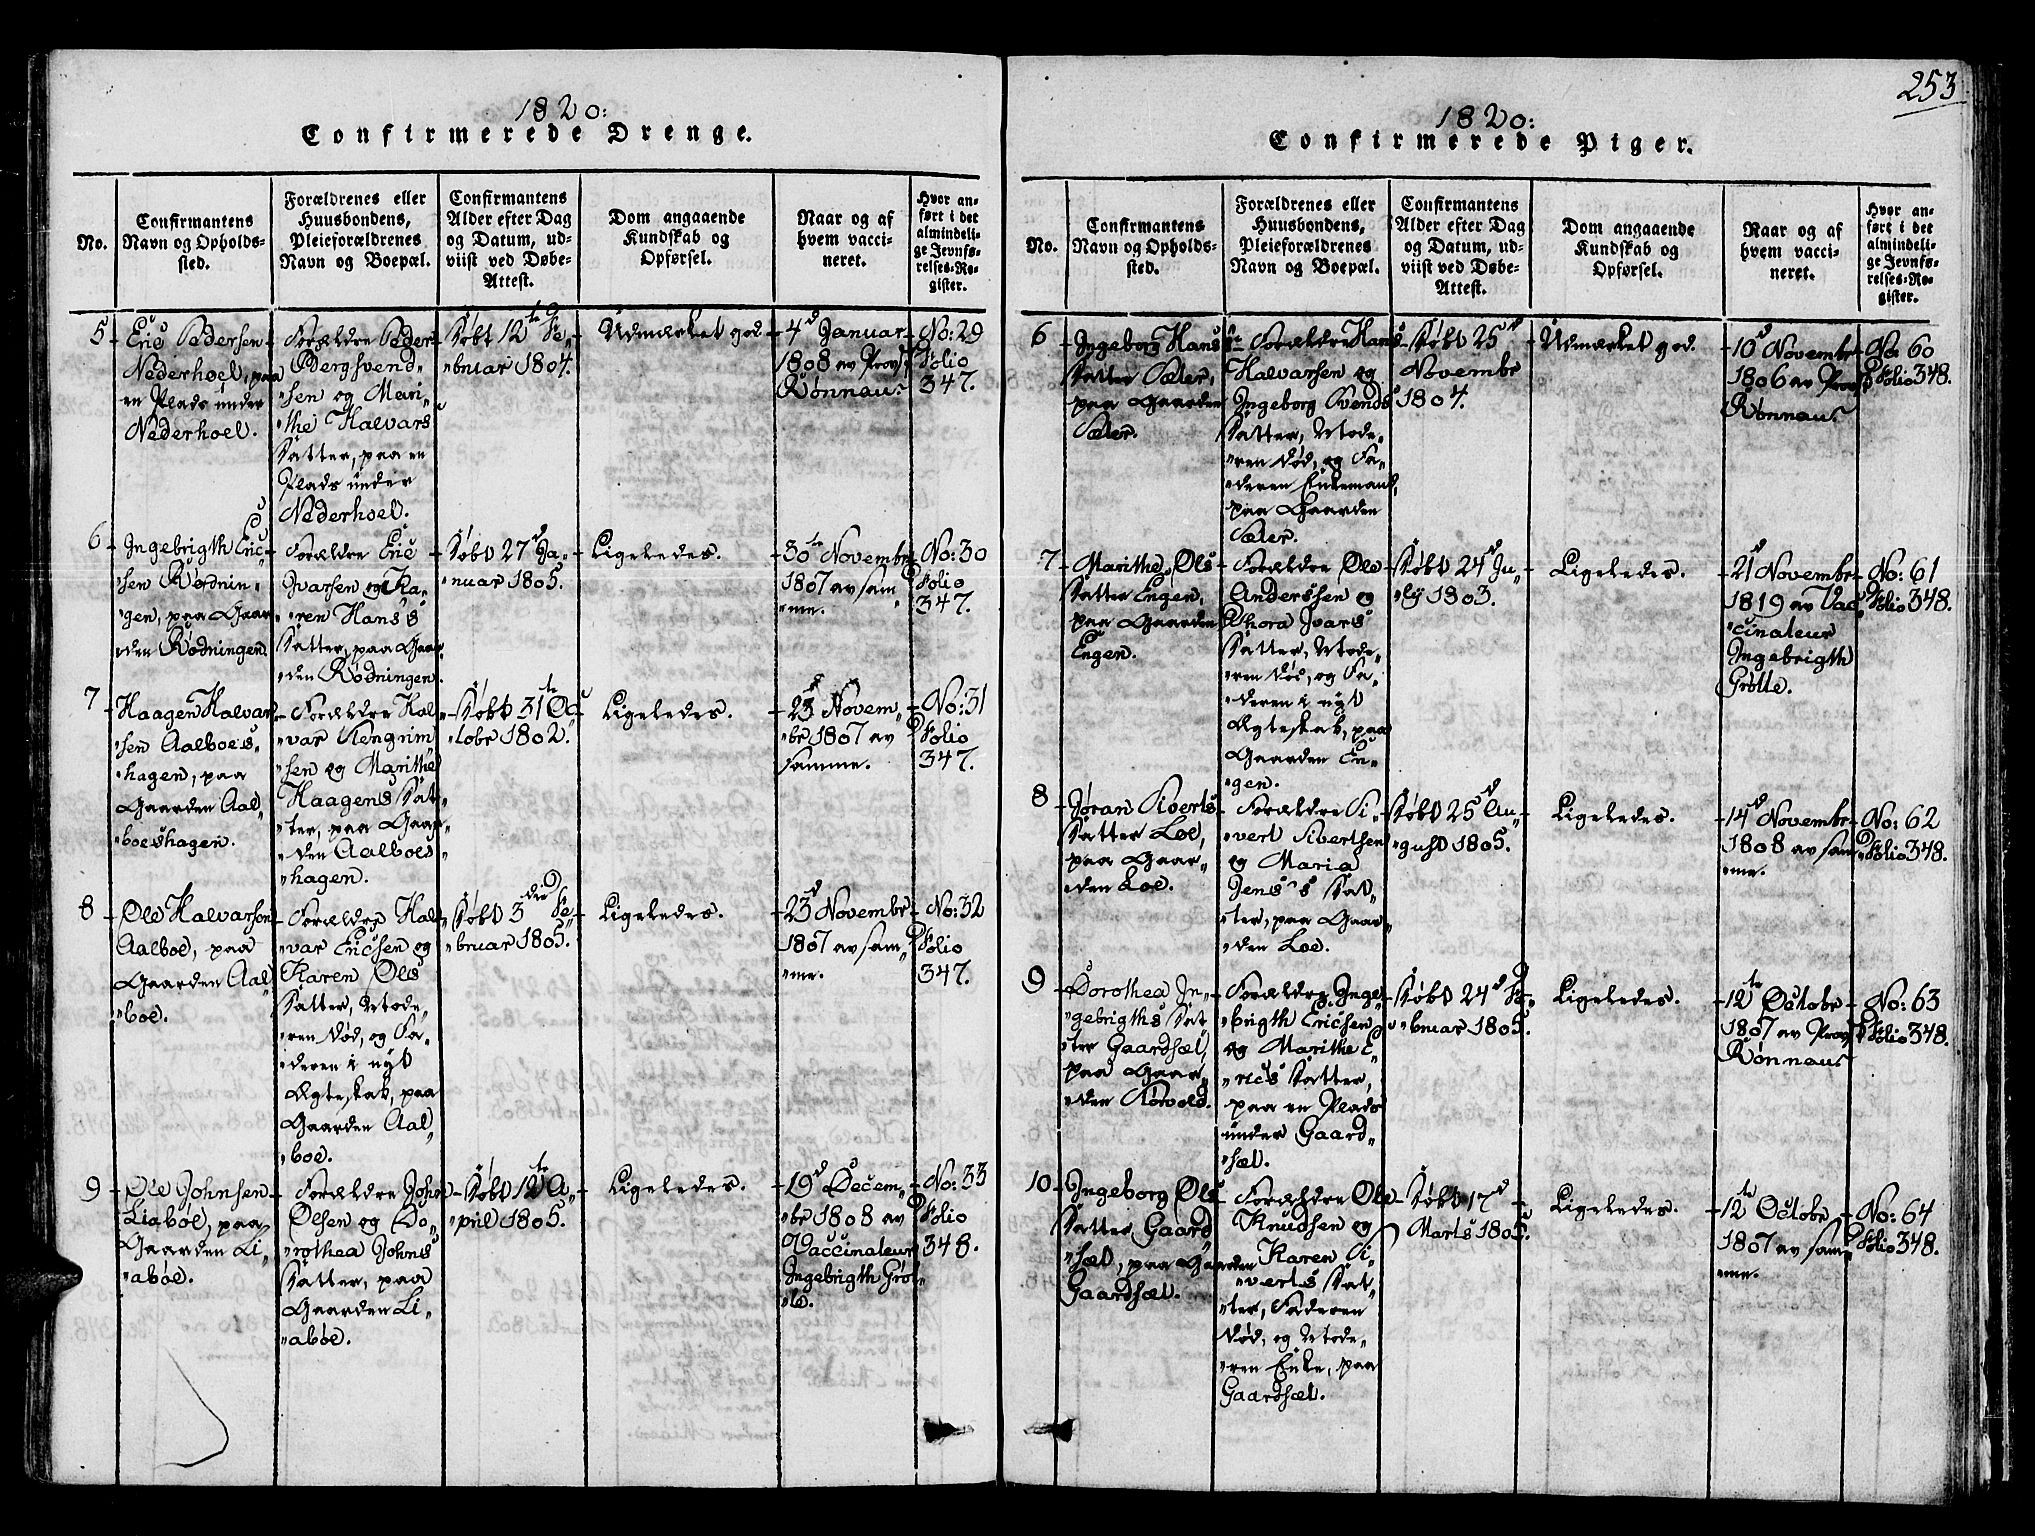 1820:
Confirmerede Drenge.
No.
Confirmantens
Navn og Opholds-
sted.
Forældrenes eller
Huusbondens,
Pleieforældrenes
Navn og Boepæl.
Confirmantens
Alder efter Dag
og Datum, ud-
viist ved Døbe-
Attest.
Dom angaaende
Kundskab og
Opførsel.
Naar og af
hvem vacci-
neret.
Hvor an-
ført i det
almindeli-
ge Jevnfø-
relses-Re-
gister.
5
Eric Pedersen
Nederhoel, paa
en Plads under
Nederhoel.
Forældre Peder
Bergsvend„
„sen og Mari„
„the Halvars
Datter, paa en
Plads under
Nederhoel.
Døbt 12te Fe„
„bruar 1804.
Udmærket god.
4d Januar
1808 av Provst
Rønnau.
No: 29
Folio
347.
6
Ingebrigth Eric„
„sen Rødnin„
„gen, paa Gaar„
„den Rødningen.
Forældre Eric
Ivarsen og Ka„
„ren Hans's
Datter, paa Gaar„
„den Rødningen.
Døbt 27d Ja„
„nuar 1805.
Ligeledes.
30te Novembr
1807 av sam„
„me.
No: 30
Folio
347.
7
Haagen Halvar„
„sen Aalboes„
„hagen, paa
Gaarden Aal„
„boeshagen.
Forældre Hal„
„var
„sen og Marithe
Haagens Dat„
„ter, paa Gaar„
„den Aalboes„
„hagen.
Døbt 31 Oc„
„tobr 1802.
Ligeledes.
23d Novem„
„br 1807 av
samme.
No: 31
Folio
347.
8
Ole Halvarsen
Aalboe, paa
Gaarden Aal„
„boe.
Forældre Hal„
„var Ericsen og
Karen Ols
Datter, Mode„
„ren død, og Fa„
„deren i nyt
Ægteskab, paa
Gaarden Aal„
„boe.
Døbt 3die Fe„
„bruar 1805.
Ligeledes.
23d Novembr
1807 av sam„
„me.
No: 32
Folio
347.
9
Ole Johnsen
Liabøe, paa
Gaarden Li„
„abøe.
Forældre John
Olsen og Do„
„rothea Johns
Datter, paa
Gaarden Li„
„abøe.
Døbt 12te A„
„pril 1805.
Ligeledes.
19d Decem„
„br 1808 av
Vaccinateur
Ingebrigth Grøt„
„te.
No: 33
Folio
348.
253
1820:
Confirmerede Piger.
No.
Confirmantens
Navn og Opholds-
sted.
Forældrenes eller
Huusbondens,
Pleieforældrenes
Navn og Boepæl.
Confirmantens
Alder efter Dag
og Datum, ud-
viist ved Døbe-
Attest.
Dom angaaende
Kundskab og
Opførsel.
Naar og af
hvem vacci-
neret.
Hvor an-
ført i det
almindeli-
ge Jevnfø-
relses-Re-
gister.
6
Ingeborg Hans's
Datter Sæter,
paa Gaarden
Sæter.
Forældre Hans
Halvarsen og
Ingeborg Svends
Datter, Mode„
„ren død, og Fa„
„deren Enkemand,
paa Gaarden
Sæter.
Døbt 25d
Novembr
1804.
Udmærket god.
10d Novembr
1806 av Provst
Rønnau.
No 60
Folio 348.
7
Marithe Ols
Datter Engen,
paa Gaarden
Engen.
Forældre Ole
Anderssen og
Thora Ivars
Datter, Mode„
„ren død, og Fa„
„deren i nyt
Ægteskab, paa
Gaarden En„
„gen.
Døbt 24d Ju„
„ly 1803.
Ligeledes.
21d Novembr
1819 av Vac„
„cinateur
Ingebrigth
Grøtte.
No: 61
Folio 348.
8
Jøran Siverts
Datter Loe,
paa Gaar„
„den Loe.
Forældre Si„
„vert Sivertsen
og Maria
Jens's Dat„
„ter, paa Gaar„
„den Loe.
Døbt 25d Au„
„gust 1805.
Ligeledes.
14d Novembr
1808 av sam„
„me.
No: 62
Folio 348.
9
Dorothea In„
„gebrigths Dat„
„ter Gaardsæt,
paa Gaar„
„den
Forældre Inge„
„brigth Ericsen
og Marithe E„
„rics Datter,
paa en Plads
under Gaard„
„sæt.
Døbt 24d Fe„
„bruar 1805.
Ligeledes.
12te Octobr
1807 av Provst
Rønnau
No: 63
Folio 348.
10
Ingeborg Ols
Datter Gaard„
„sæt, paa Gaarden
Gaardsæt.
Forældre Ole
Knudsen og
Karen Si„
„verts Dat„
„ter, Faderen
død, og Mode„
„ren Enke, paa
Gaardsæt.
Døbt 17d
Marts 1805.
Ligeledes.
12te Octobr
1807 av sam„
„me.
No: 64
Folio 348.